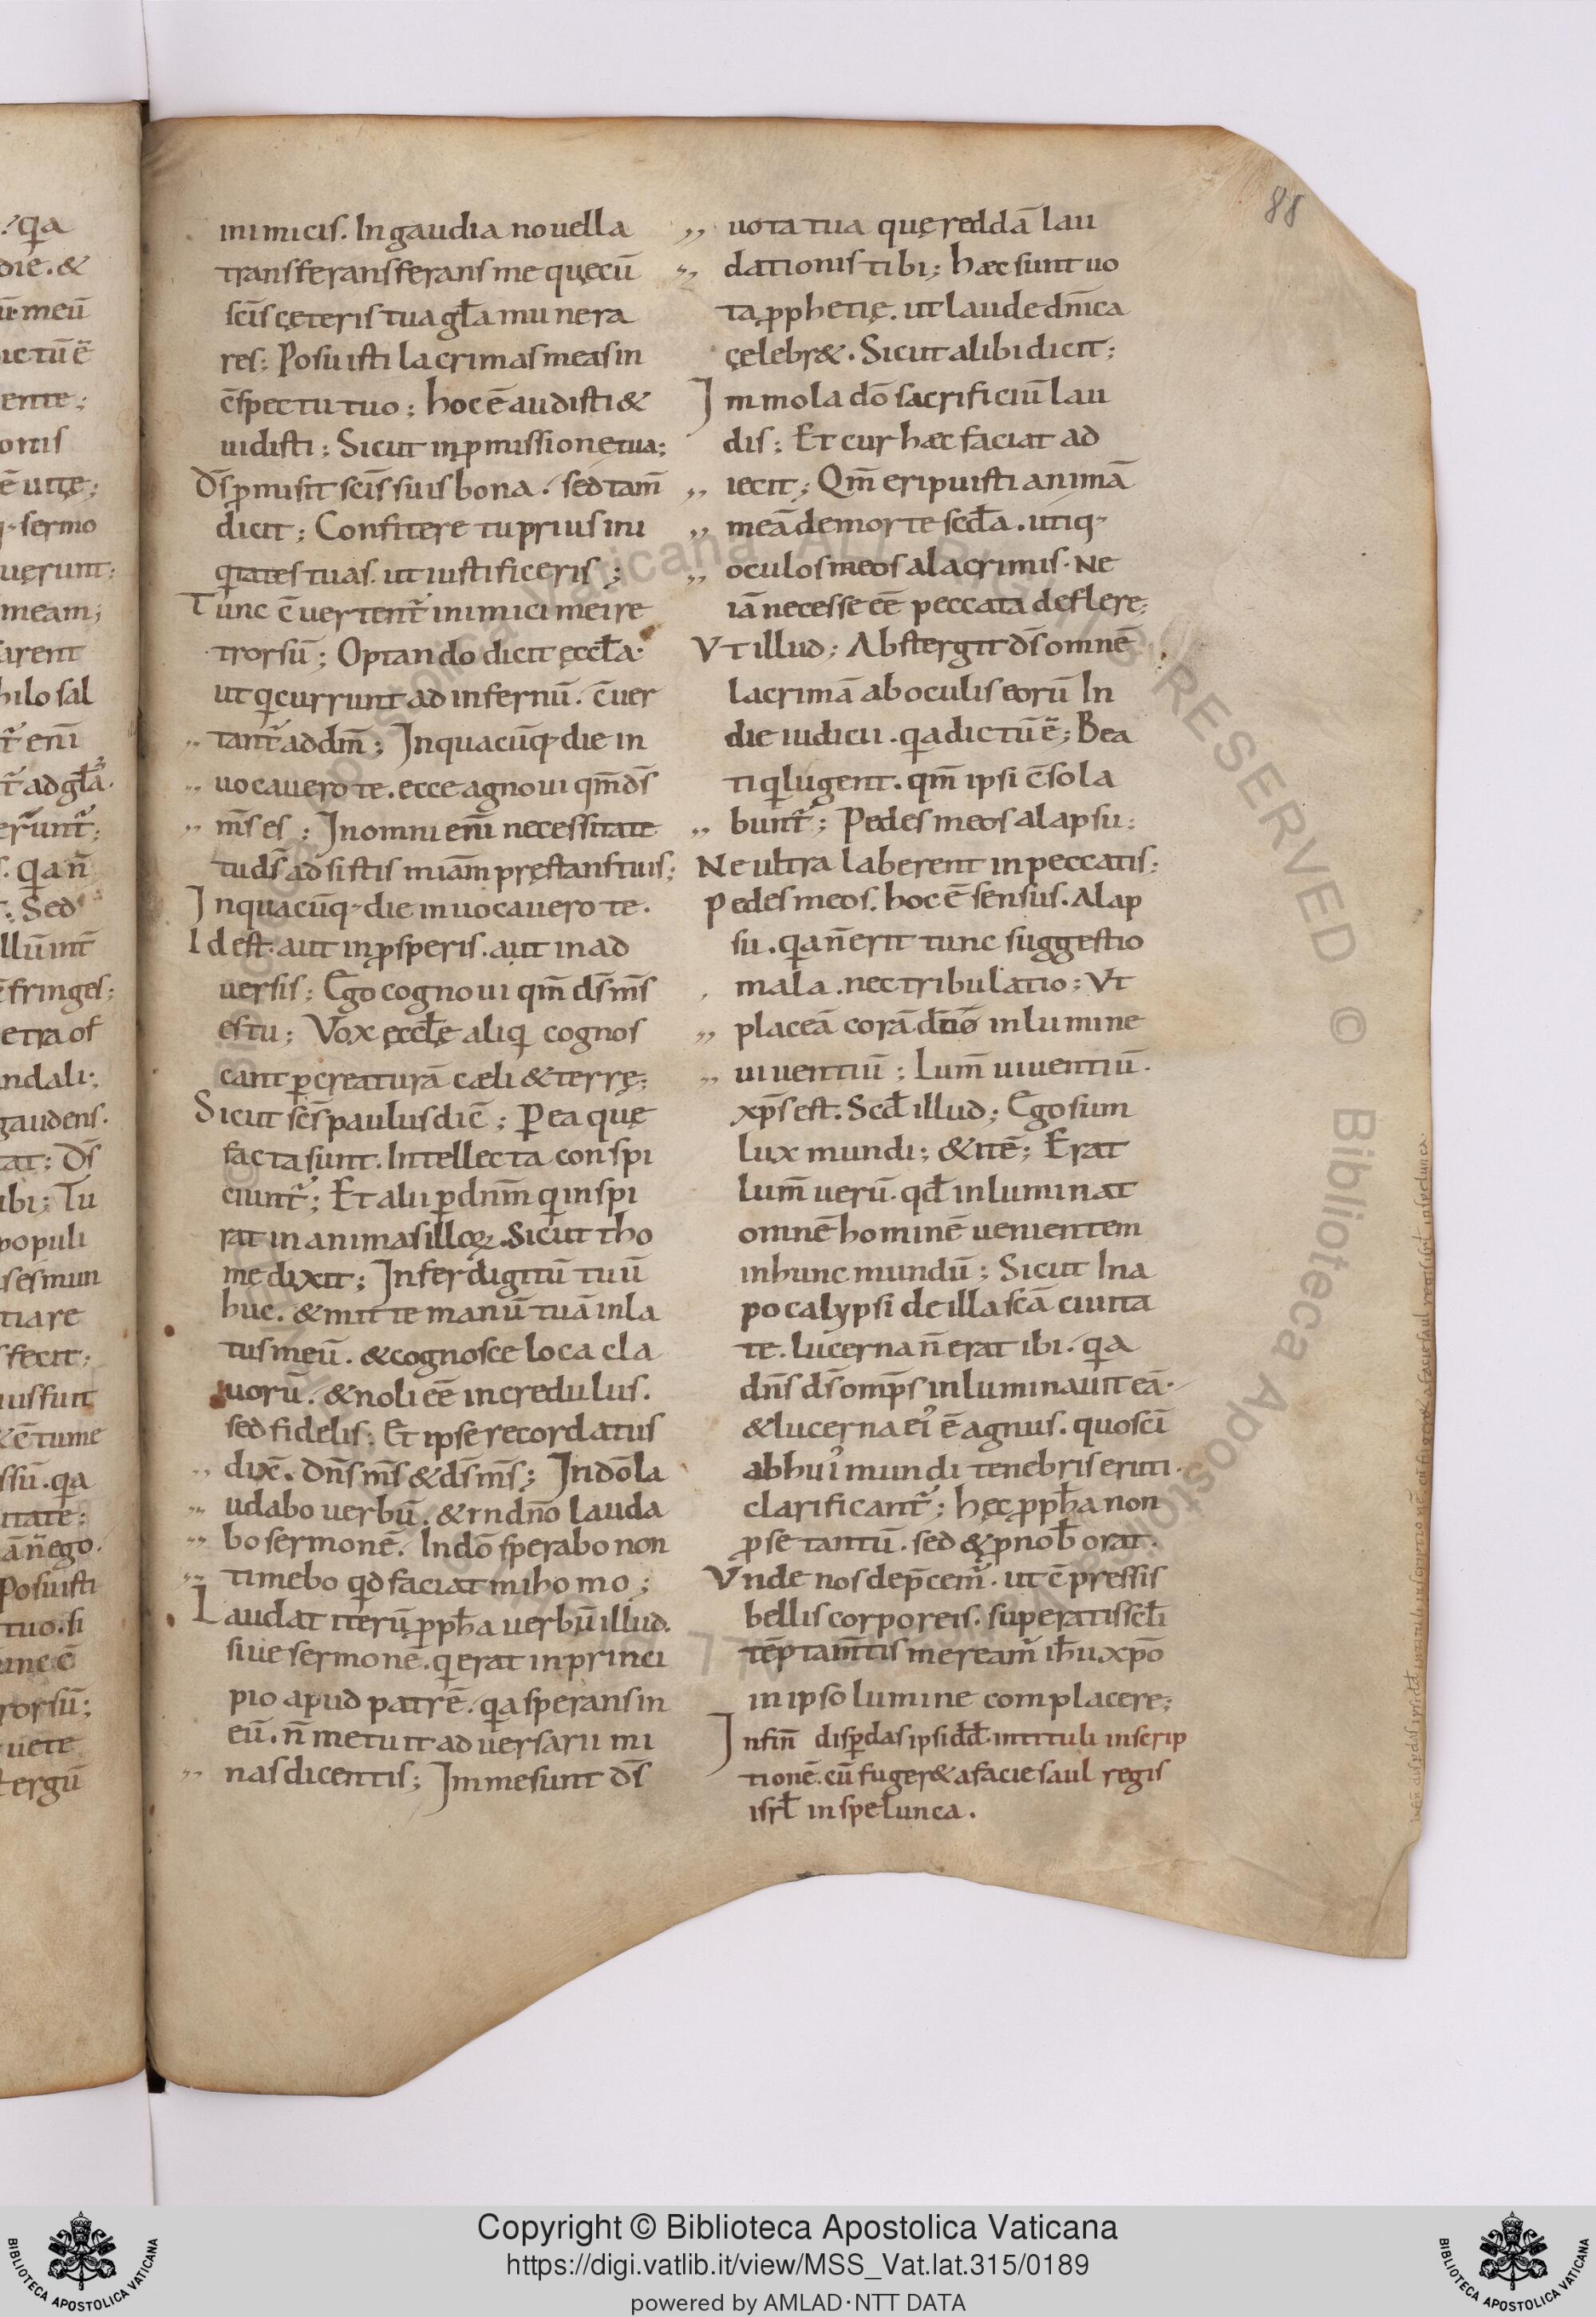 88
inimicis. In gaudia nouella
transferansferans me quęcū
sc̄is cęteris tua gl̄a munera
res; Posuisti lacrimas meas in
c̄spectu tuo; hoc ē audisti &
uidisti; Sicut in ꝓmissione tua;
Ds̄ ꝓmisit sc̄is suis bona. sed tam̄
dicit; Confitere tu prius ini
q̇tates tuas. ut iustificeris;
Tunc c̄uertent᷑ inimici mei re
trorsū; Optando dicit ęccl̄a
ut q̇ currunt ad infernū. c̄uer
,, tant᷑ ad dm̄; In quacūq; die in
,, uocauero te. ecce agnoui qm̄ ds̄
,, ms̄ es; In omni eni̅ necessitate
tu ds̄ adsistis miām pręstans tuis;
In quacūq; die inuocauero te.
Id est. aut in ꝓsperis. aut in ad
uersis; Ego cognoui qm̄ ds̄ ms̄
es tu; Vox ęccl̄ę aliq̇ cognos
cant ꝑ creaturā cæli & terrę;
Sicut sc̄s paulus dic̄; Per ea quę
facta sunt. Intellecta conspi
ciunt᷑; Et alii ꝑ dnm̄ q̇ inspi
rat in animas illoꝝ. Sicut tho
mę dixit; Infer digitū tuū
huc. & mitte manū tuā in la
tus meū. & cognosce loca cla
uorū. & noli eē incredulus.
sed fidelis; Et ipse recordatus
,, dix̄. Dn̄s ms̄ & ds̄ ms̄; In dō la
,, udabo uerbū. & in dnō lauda
,, bo sermonē. In dō sperabo non
,, timebo qd faciat mi homo;
Laudat iterū ꝓph̄a uerbū illud.
siue sermonē. q̇ erat in princi
pio apud patrē. qa sperans in
eū. n̄ metuit aduersarii mi
,, nas dicentis; In me sunt ds̄
,, uota tua quę reddā lau
,, dationis tibi; hæc sunt uo
ta ꝓphetię. ut laude dn̄ica
cęlebr&. Sicut alibi dicit;
Immola dō sacrificiū lau
dis; Et cur hæc faciat ad
,, iecit; Qm̄ eripuisti animā
,, meā de morte scd̄a. utiq;
,, oculos meos a lacrimis. Ne
iā necesse eē peccata deflere;
Vt illud; Abstergit ds̄ omnē
lacrimā ab oculis eorū In
die iudicii. qa dictū ē; Bea
ti q̇ lugent. qm̄ ipsi c̄sola
,, bunt᷑; Pedes meos a lapsu;
Ne ultra laberent in peccatis;
Pedes meos. hoc ē sensus. A lap
su. qa n̄ erit tunc suggestio
mala. nec tribulatio; Vt
,, placeā corā dnō in lumine
,, uiuentiū; Lum̄ uiuentiū.
xp̄s est. Scd̄ illud; Ego sum
lux mundi; & itē; Erat
lum̄ uerū. qd̄ inluminat
omnē hominē uenientem
in hunc mundū; Sicut In a
pocalypsi de illa sc̄a ciuita
te. lucerna n̄ erat ibi. qa
dn̄s ds̄ omp̄s inluminauit eā.
& lucerna ei᾽ ē agnus. quo sc̄i
ab hui᾽ mundi tenebris eruti.
clarificant᷑; hęc ꝓph̄a non
ꝓ se tantū. sed & ꝓ nob̄ orat.
Vnde nos dep̄cem᷑. ut c̄pressis
bellis corporeis. superatis scl̄i
tēptam̄tis meream᷑ ih̄u xp̄o
in ipso lumine complacere;
In fin̄ disꝑdas ipsi dd̄. in tituli inscrip
tionē. cū fuger& a facie saul regis
isrl̄ in spelunca.
Copyright © Biblioteca Apostolica Vaticana
https://digi.vatlib.it/view/MSS_Vat.lat.315/0189
powered by AMLAD·NTT DATA